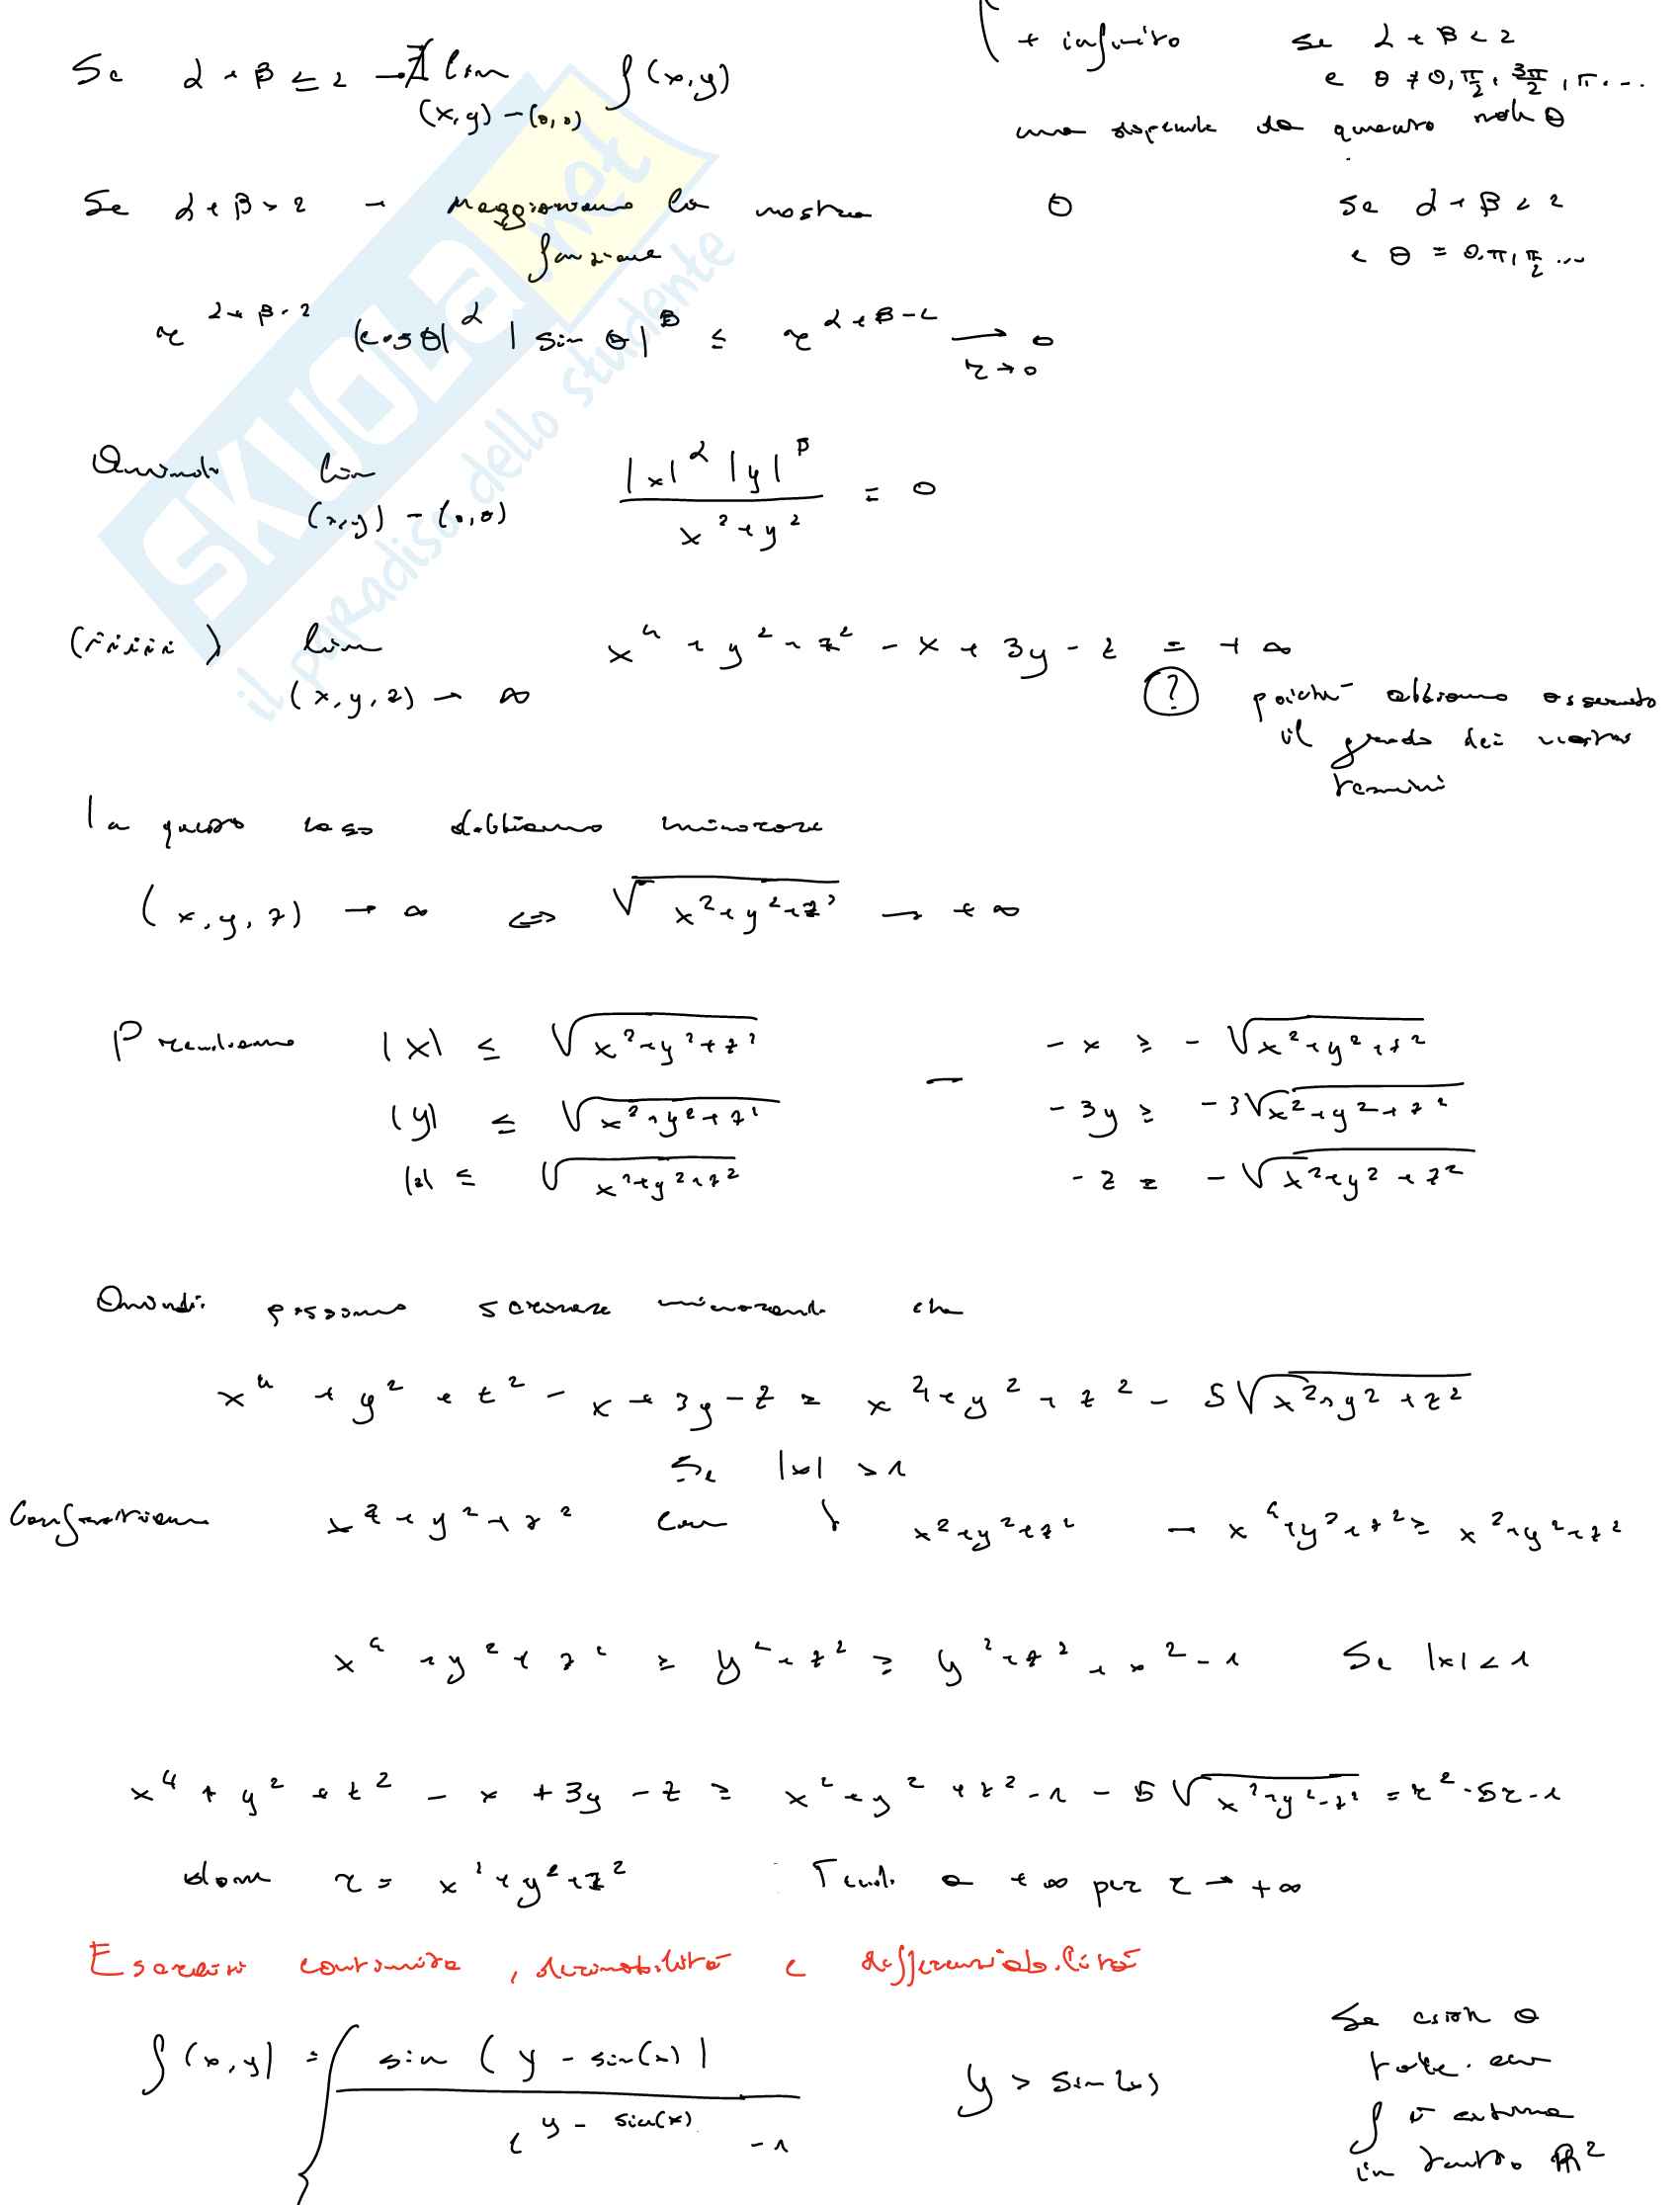 Se α + β ≤ 2 → ∄ lim f(x,y)
(x,y) → (0,0)
+ infinito se α + β < 2
e θ ≠ 0, π/2, 3π/2, π...
ma dipende da quanto vale θ
Se α + β > 2 → Maggioriamo la nostra
funzione
0 se α + β < 2
e θ = 0, π, π/2 ...
r^(α+β-2) |cos θ|^α |sin θ|^β ≤ r^(α+β-2) → 0
r → 0
Quindi lim |x|^α |y|^β / (x² + y²) = 0
(x,y) → (0,0)
(iiiii) lim x⁴ + y² + z² - x + 3y - z = + ∞
(x, y, z) → ∞
? poiché abbiamo osservato
il grado dei nostri
termini
In questo caso dobbiamo minorare
(x, y, z) → ∞ ⟺ √(x² + y² + z²) → + ∞
Prendiamo |x| ≤ √(x² + y² + z²) → - x ≥ - √(x² + y² + z²)
|y| ≤ √(x² + y² + z²) - 3y ≥ - 3√(x² + y² + z²)
|z| ≤ √(x² + y² + z²) - z ≥ - √(x² + y² + z²)
Quindi possiamo scrivere minorando che
x⁴ + y² + z² - x + 3y - z ≥ x⁴ + y² + z² - 5√(x² + y² + z²)
Se |x| > 1
Confrontiamo x⁴ + y² + z² con x² + y² + z² → x⁴ + y² + z² ≥ x² + y² + z²
x⁴ + y² + z² ≥ y² + z² ≥ y² + z² + x² - 1 Se |x| < 1
x⁴ + y² + z² - x + 3y - z ≥ x² + y² + z² - 1 - 5√(x² + y² + z²) = r² - 5r - 1
dove r = x² + y² + z² Tende a + ∞ per r → + ∞
Esercizi continuità, derivabilità e differenziabilità
f(x,y) = { sin (y - sin(x)) / (e^(y - sin(x)) - 1) y > sin(x)
Se esiste a
tale che
f è continua
in tutto ℝ²
SKUOLA.net
il paradiso dello studente